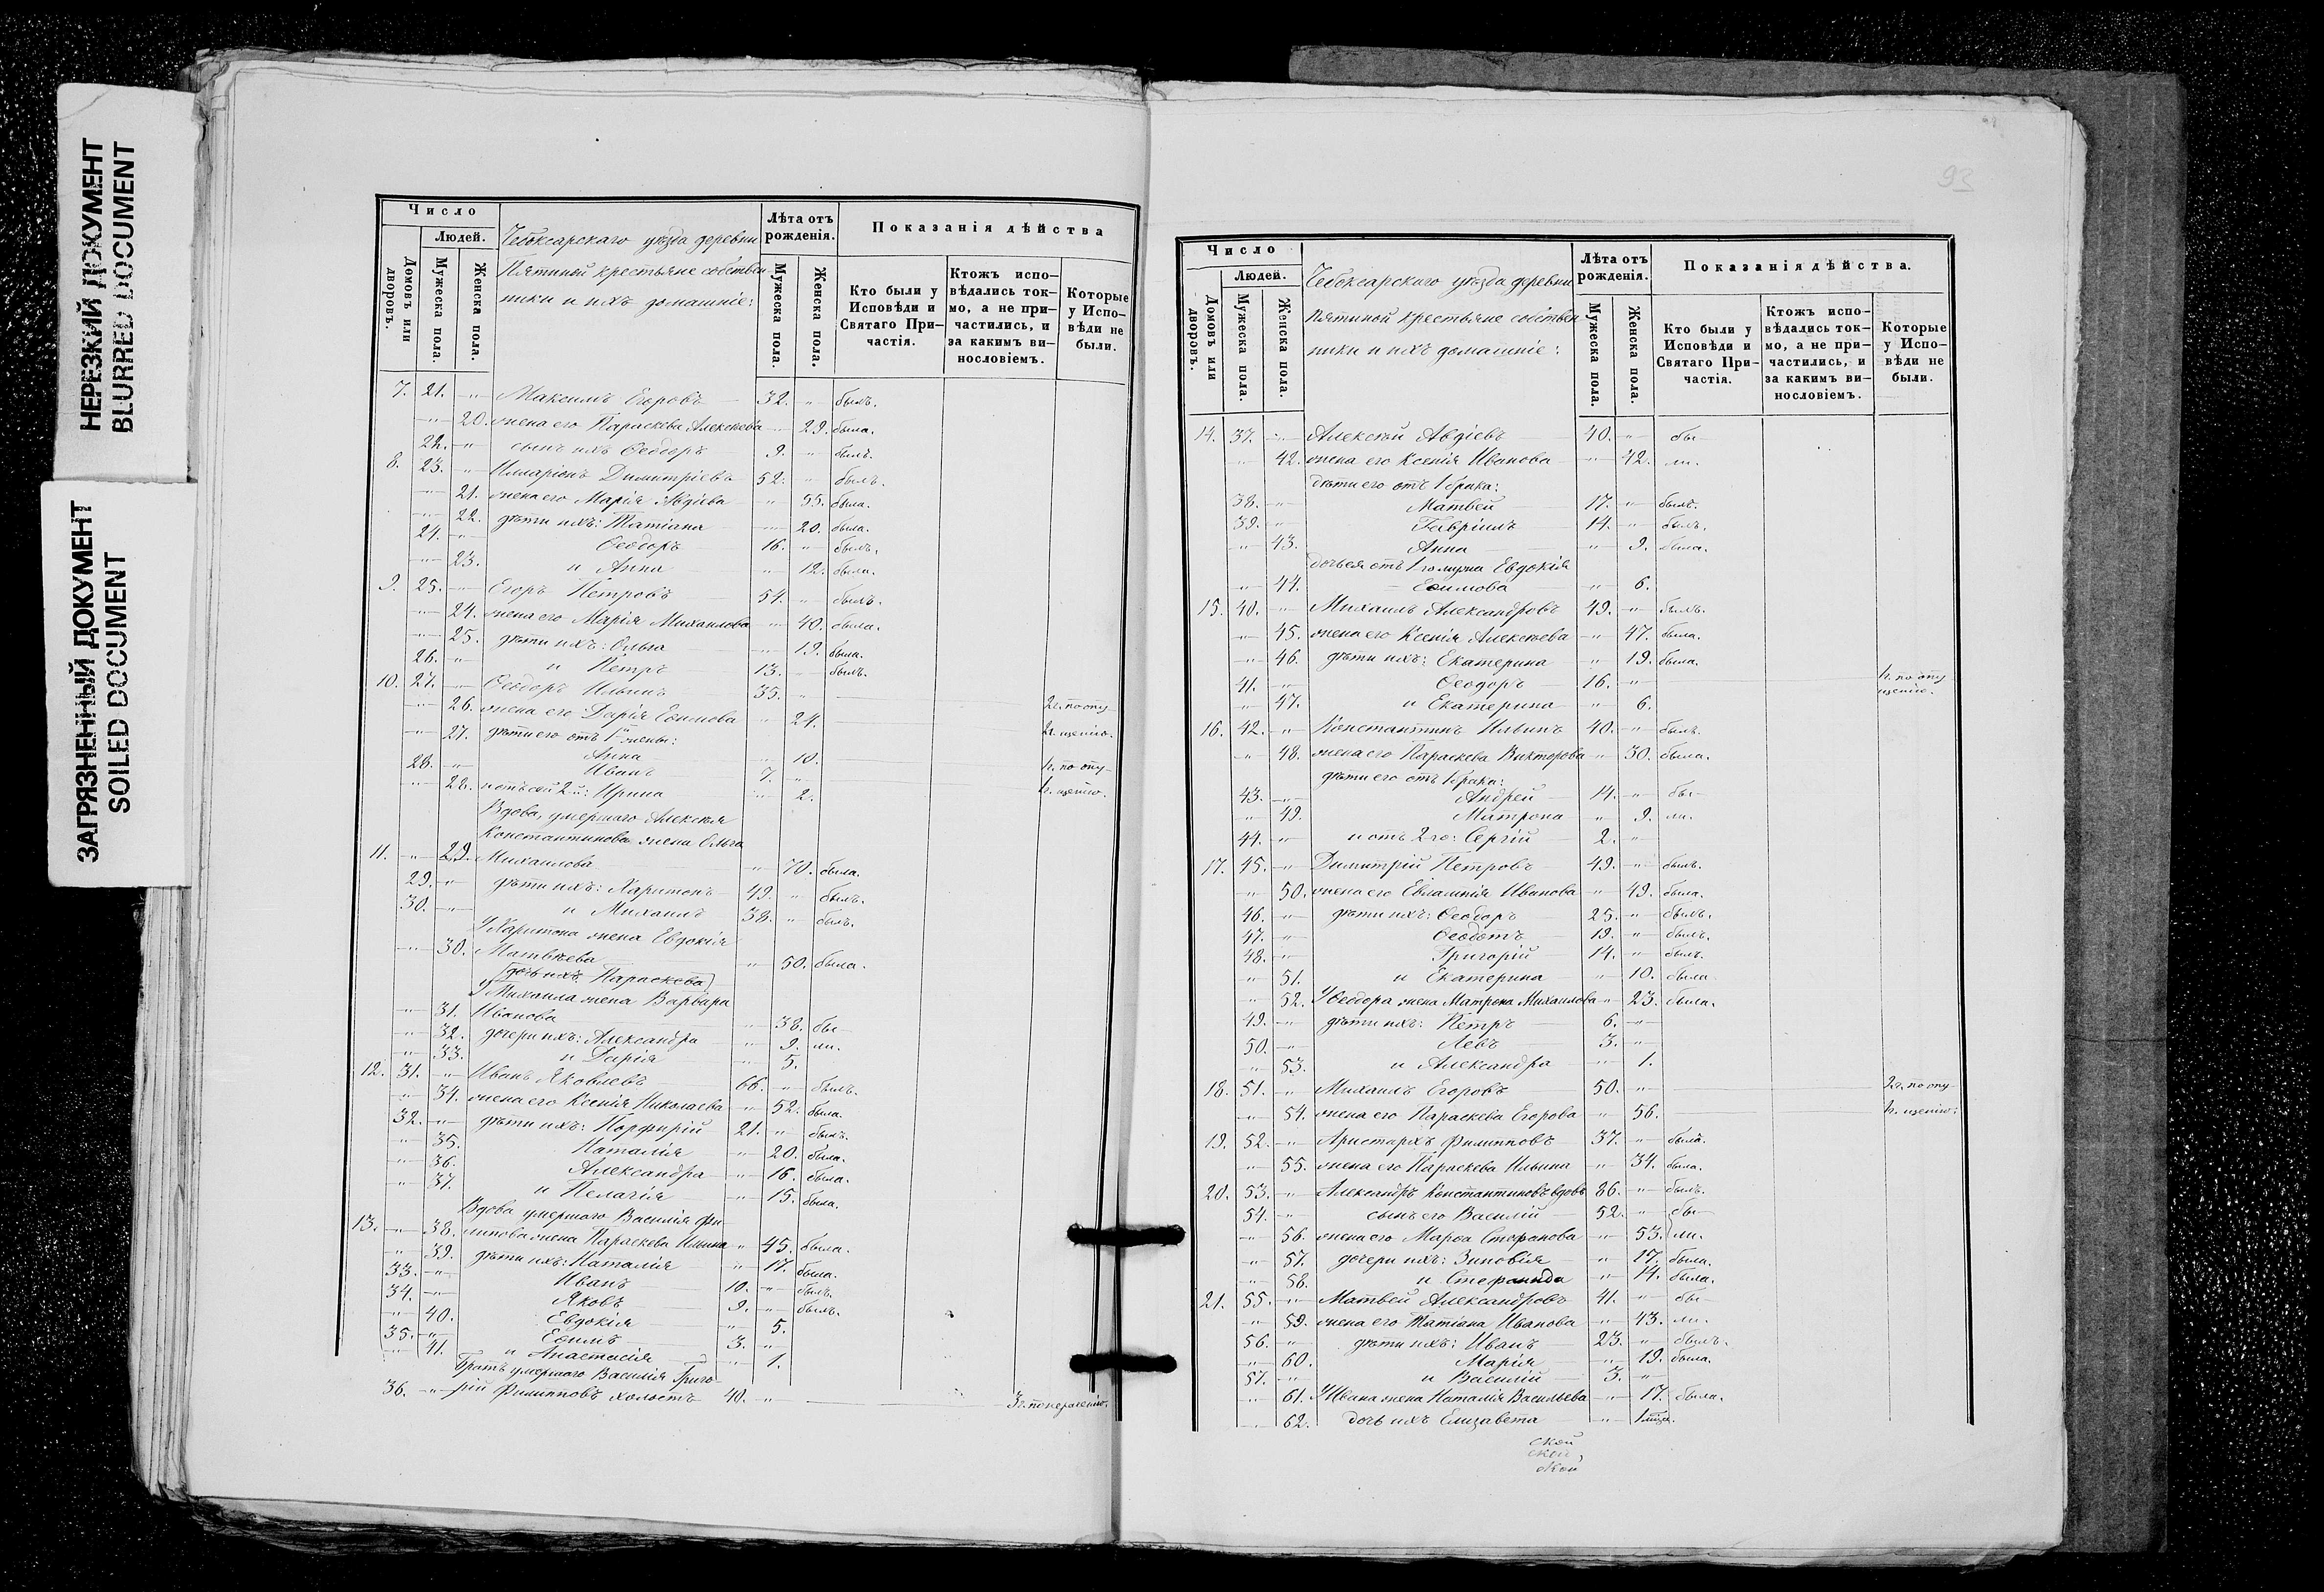 НЕРЕЗКИЙ ДОКУМЕНТ
BLURRED DOCUMENT
ЗАГРЯЗНЕННЫЙ ДОКУМЕНТ
SOILED DOCUMENT
Число
Людей.
Домовъ или дворовъ.
Мужеска пола.
Женска пола.
Чебоксарскаго уѣзда деревни
Пятиной крестьяне собствен
ники и ихъ домашніе:
Лѣта отъ рожденія.
Мужеска пола.
Женска пола.
Показанія дѣйства
Кто были у Исповѣди и Святаго При-частія.
Ктожъ испо-вѣдались ток-мо, а не при-частились, и за какимъ ви-нословіемъ.
Которые у Испо-вѣди не были.
7. 21. -"- Максимъ Егоровъ 32. " былъ.
-"- 20. жена его Параскева Алексѣева -"- 29. была.
22. -"- сынъ ихъ Ѳеодоръ 9. " былъ.
8. 23. " Илларіонъ Димитріевъ 52. " былъ.
-"- 21. жена его Марія Авдіева " 55. была.
-"- 22. дѣти ихъ: Татіана -"- 20. была.
24. -"- Ѳеодоръ 16. -"- былъ.
-"- 23. и Анна " 12. была.
9. 25. -"- Егоръ Петровъ 54. " былъ.
-"- 24. жена его Марія Михаилова -"- 40. была.
-"- 25. дѣти ихъ: Ольга " 19. была.
26. -"- и Петръ 13. - былъ.
10. 27. -"- Ѳеодоръ Ильинъ 35. "
-"- 26. жена его Дарія Ееимова " 24. 2г. по опу
-"- 27. дѣти его отъ 1й жены: 2г. щенію.
Анна " 10.
28. -"- Иванъ 7. " 1г. по опу-
-"- 28. и отъ сей 2-й: Ирина -"- 2. 1г. щенію.
Вдова, умершаго Алексѣя
Константинова жена Ольга
11. -"- 29. Михаилова " 70. была.
29. -"- дѣти ихъ: Харитонъ 49. " былъ.
30. -"- и Михаилъ 38. " былъ.
У Харитона жена Евдокія
-"- 30. Матвѣева " 50. была.
[дочь ихъ Параскева]
У Михаила жена Варвара
-"- 31. Иванова " 38. бы-
-"- 32. дочери ихъ: Александра -"- 9. ли.
-"- 33. и Дарія -"- 5.
12. 31. -"- Иванъ Яковлевъ 66. -"- былъ.
" 34. жена его Ксенія Николаева -"- 52. была.
32. -"- дѣти ихъ: Порфирій 21. -"- былъ.
" 35. Наталія " 20. была.
-"- 36. Александра -"- 16. была.
-"- 37. и Пелагія " 15. была.
Вдова умершаго Василія Фи-
13. -"- 38. липова жена Параскева Ильина " 45. была.
" 39. дѣти ихъ: Наталія -"- 17. была.
33. -"- Иванъ 10. -"- былъ.
34. -"- Яковъ 9. -"- былъ.
-"- 40. Евдокія -"- 5.
35. -"- Ееимъ 3. "
-"- 41. и Анастасія " 1.
Братъ умершаго Василія Григо-
36. -"- рій Филипповъ холостъ 40. -"- 3г. по нераденію.
93
Число
Людей.
Домовъ или дворовъ.
Мужеска пола.
Женска пола.
Чебоксарскаго уѣзда деревни
Пятиной крестьяне собствен
ники и ихъ домашніе:
Лѣта отъ рожденія.
Мужеска пола.
Женска пола.
Показанія дѣйства.
Кто были у Исповѣди и Святаго При-частія.
Ктожъ испо-вѣдались ток-мо, а не при-частились, и за какимъ ви-нословіемъ.
Которые у Испо-вѣди не были.
14. 37. -"- Алексѣй Авдіевъ 40. -"- бы-
-"- 42. жена его Ксенія Иванова -"- 42. ли.
дѣти его отъ 1 брака:
38. -"- Матвей 17. -"- былъ.
39. -"- Гавріилъ 14. -"- былъ.
-"- 43. Анна " 9. была.
дочь ея отъ 1го мужа Евдокія
-"- 44. Ееимова " 6.
15. 40. -"- Михаилъ Александровъ 49. -"- былъ.
-"- 45. жена его Ксенія Алексѣева -"- 47. была.
-"- 46. дѣти ихъ: Екатерина " 19. была.
41. -"- Ѳеодоръ 16. -"- 1г. по опу
щенію.
-"- 47. и Екатерина " 6.
16. 42. -"- Константинъ Ильинъ 40. -"- былъ.
-"- 48. жена его Параскева Викторова -"- 30. была.
дѣти его отъ 1 брака:
43. -"- Андрей 14. -"- бы-
" 49. Матрона " 9. ли.
44. -"- и отъ 2го: Сергій 2. -"-
17. 45. -"- Димитрій Петровъ 49. -"- былъ.
-"- 50. жена его Евлампія Иванова -"- 49. была.
46. -"- дѣти ихъ: Ѳеодоръ 25. -"- былъ.
47. -"- Ѳеодотъ 19. -"- былъ.
48. -"- Григорій 14. -"- былъ.
" 51. и Екатерина -"- 10. была
" 52. У Ѳеодора жена Матрона Михаилова -"- 23. была.
49. -"- дѣти ихъ: Петръ 6. -"-
50. -"- Левъ 3. -"-
" 53. и Александра -"- 1.
18. 51. -"- Михаилъ Егоровъ 50. -"- 2г. по опу
-"- 54. жена его Параскева Егорова -"- 56. 1г. щенію.
19. 52. -"- Аристархъ Филипповъ 37. -"- былъ.
-"- 55. жена его Параскева Ильина -"- 34. была.
20. 53. -"- Александръ Константиновъ вдовъ 86. -"- былъ.
54. -"- сынъ его Василій 52. -"- бы-
-"- 56. жена его Марѳа Стефанова -"- 53. ли.
-"- 57. дочери ихъ: Зиновія -"- 17. была.
-"- 58. и Стефанида -"- 14. была.
21. 55. -"- Матвей Александровъ 41. -"- бы-
-"- 59. жена его Татіана Иванова -"- 43. ли.
56. -"- дѣти ихъ: Иванъ 23. -"- былъ.
-"- 60. Марія -"- 19. была.
57. -"- и Василій 3. -"-
-"- 61. У Ивана жена Наталія Васильева -"- 17. была.
-"- 62. дочь ихъ Елизавета -"-
ской
ской,
ской